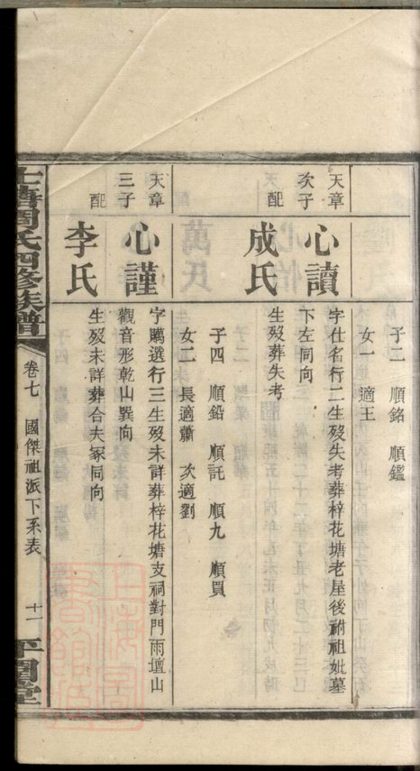 子二 順銘 順鑑
女一 適王
天章次子
心讀
字仕名行二生歿失考葬梓花塘老屋後祔祖妣墓
下左同向
配
成氏
生歿葬失考
子四 順鉛 順託 順九 順買
女二 長適蕭 次適劉
天章三子
心謹
字騰選行三生歿未詳葬梓花塘支祠對門雨壇山
觀音形乾山巽向
配
李氏
生歿未詳葬合夫冢同向
周氏四修族譜
卷七
國傑祖派下系表
十一